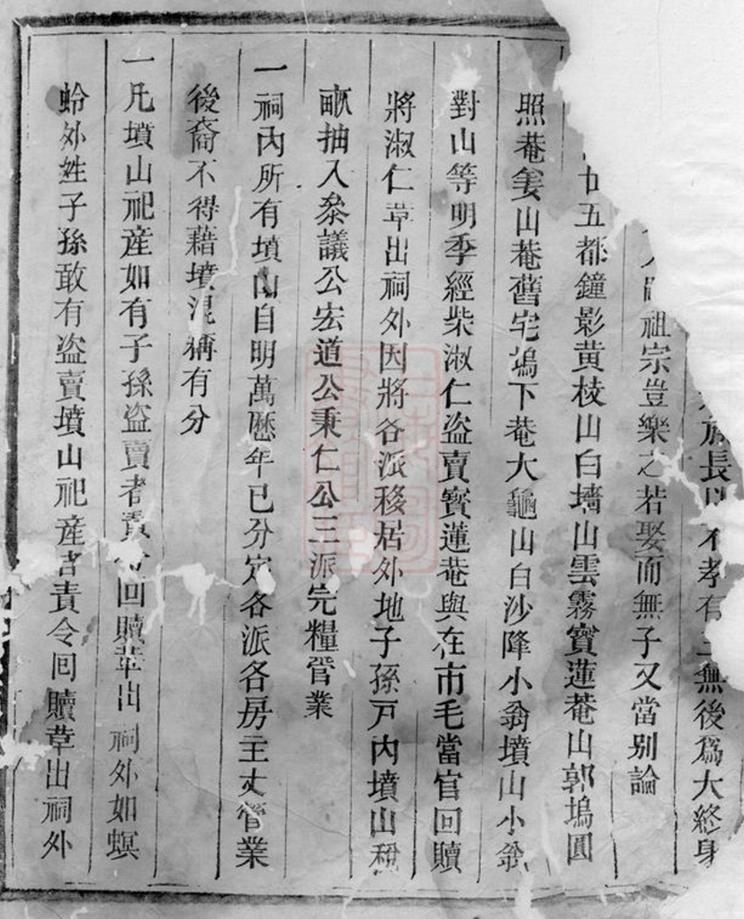 族長以不孝有三無後爲大終身
祖宗豈樂之若娶而無子又當别論
廿五都鐘影黄枝山白墙山雲霧寳蓮菴山郭塢圓
照菴姜山菴舊宅塢下菴大龜山白沙降小翁墳山小翁
對山等明季經柴淑仁盗賣寳蓮菴與在市毛當官回贖
將淑仁革出祠外因將各派移居外地子孫戸内墳山稅
畝抽入叅議公宏道公秉仁公三派完糧管業
一祠内所有墳山自明萬歴年已分定各派各房主丈管業
後裔不得藉墳混稱有分
一凡墳山祀産如有子孫盗賣者責令回贖革出祠外如螟
蛉外姓子孫敢有盗賣墳山祀産者責令回贖革出祠外